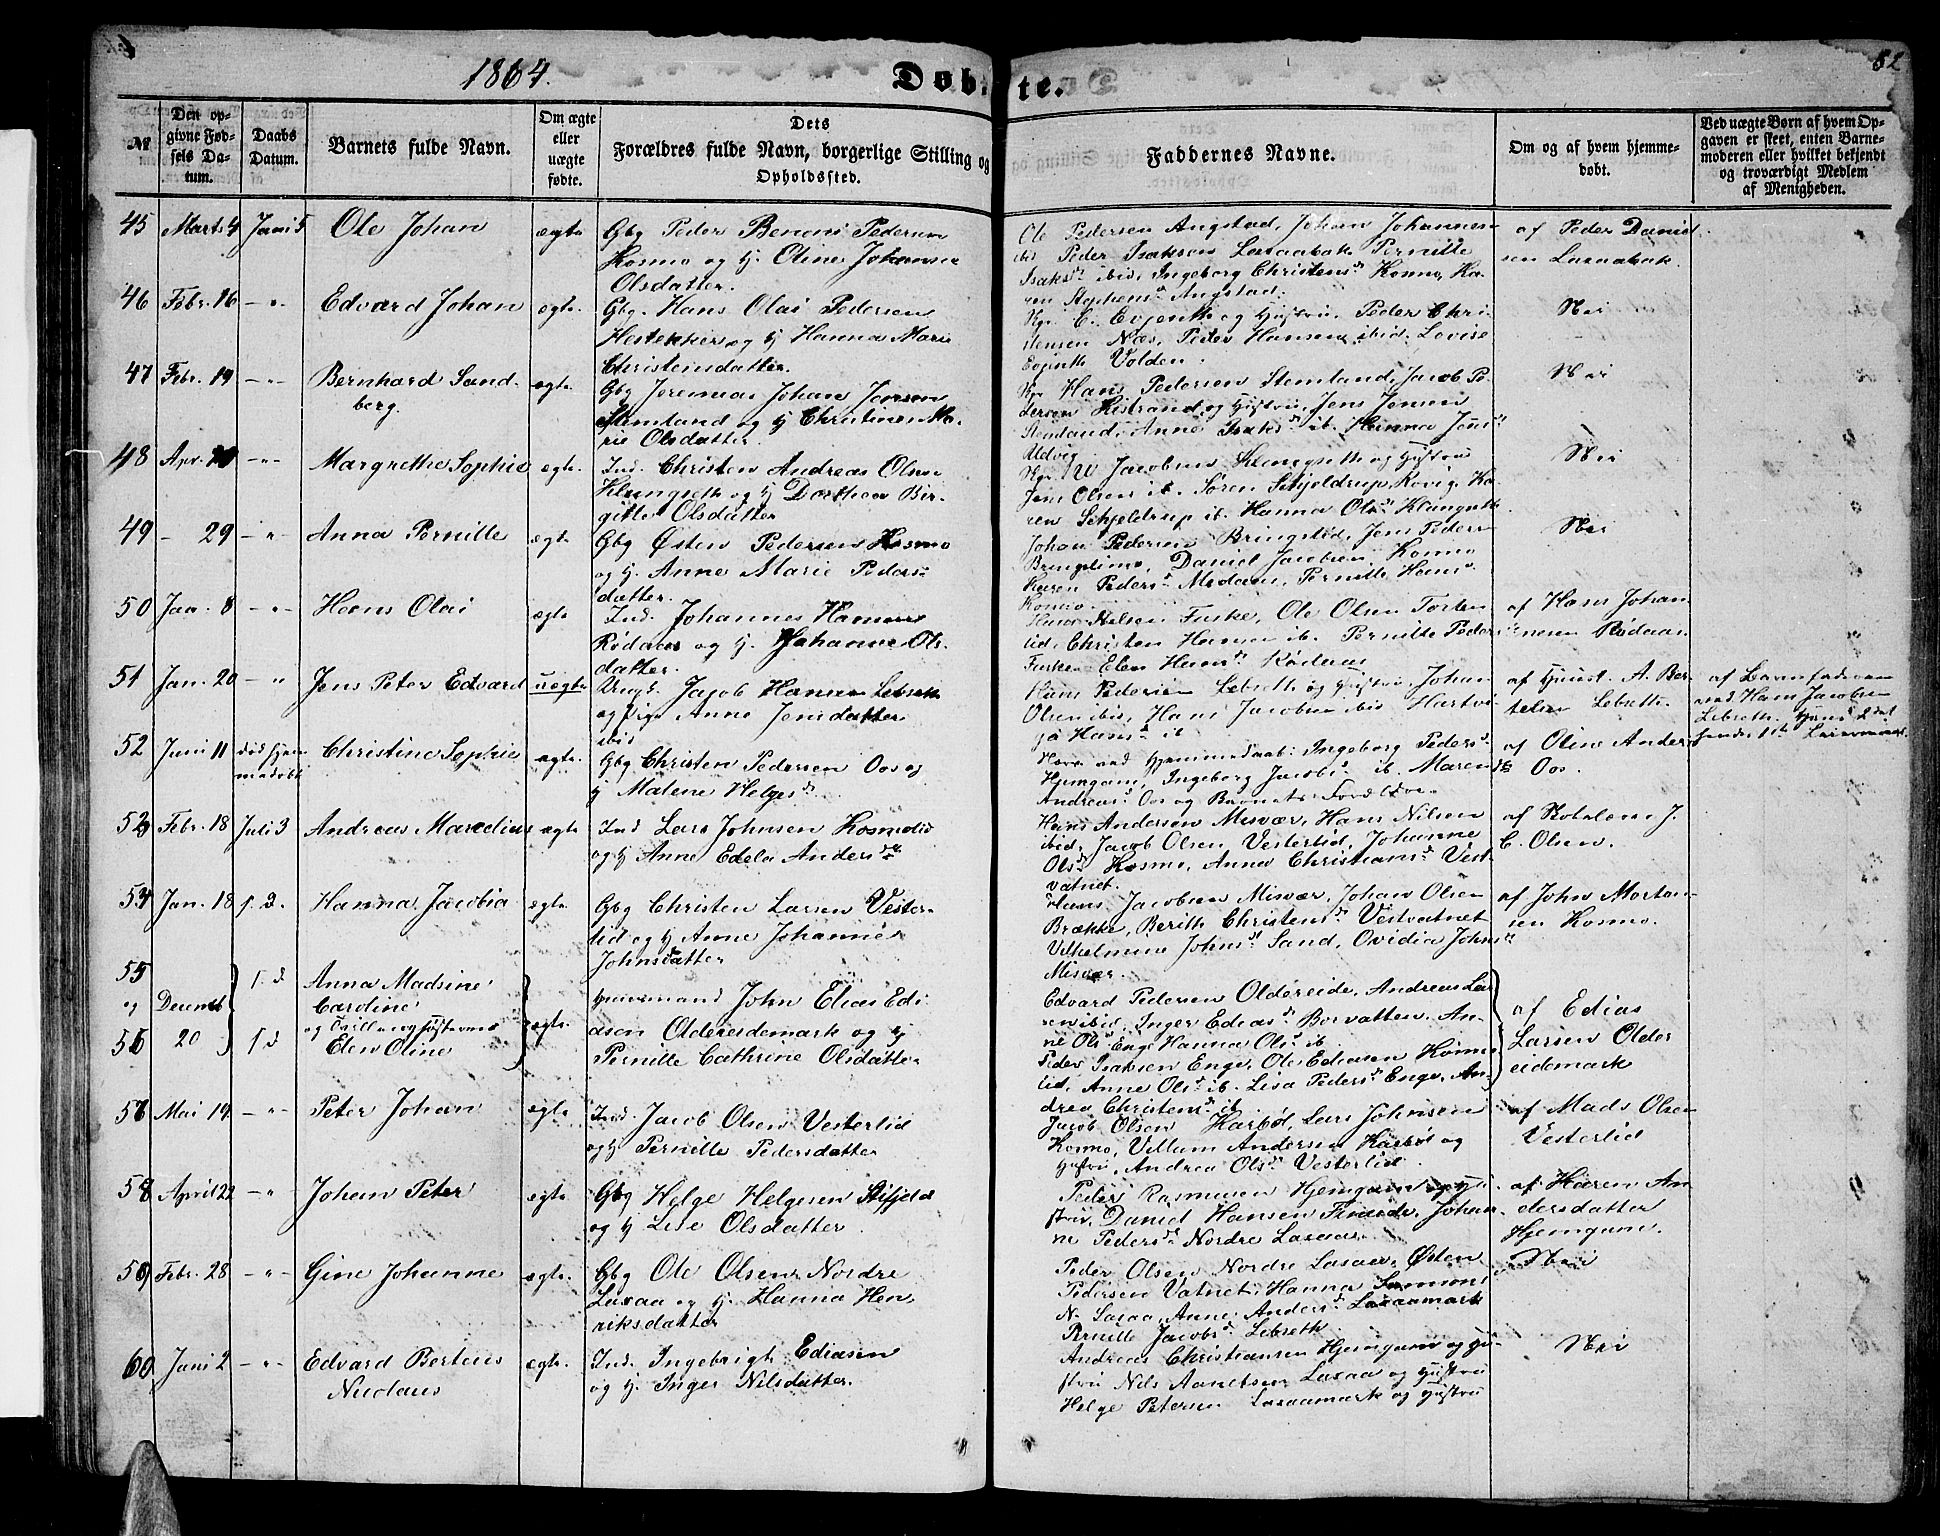 1864.
Døbte.
52
№
Den opgivne Fødsels Datum.
Daabs Datum.
Barnets fulde Navn.
Om ægte eller uægte fødte.
Dets Forældres fulde Navn, borgerlige Stilling og Opholdssted.
Faddernes Navne.
Om og af hvem hjemmedøbt.
Ved uægte Børn af hvem Opgaven er skeet, enten Barnemoderen eller hvilket bekjendt og troværdigt Medlem af Menigheden.
45 Marts 4 Juni 5 Ole Johan ægte Gbg Peder Benoni Pedersen
Kosmo og h. Oline Johanna
Olsdatter.
Ole Pedersen Angstad, Johan Johannes-
ibid Peder Isaksen Laxaabak Pernille
Isaksd. ibid, Ingeborg Christensd. Kosmo, Ka-
ren Stephensd. Angstad.
af Peder Daniel
sen Laxaabak.
46 Febr. 16 -"- Edvard Johan ægte. Gbg. Hans Olai Pedersen
og h Hanna Marie
Christensdatter.
C. Evjenth og Hustru, Peder Chri
stensen Næs, Peter Hansen ibid. Lovise
Evjenth Volden.
Nei
47 Febr. 19 -"- Bernhard Sand-
berg.
ægte. Gbg Jeremias Johan Jensen
Stemland og h Christine Ma-
rie Olsdatter.
Hans Pedersen Stemland, Jacob Pe-
dersen Kistrand og Hustru, Jens Jensen
Stemland, Anne Isaksd. ib. Hanna Jensd.
Udvig
Nei
48 Apr. -"- Margrethe Sophie ægte. Ind. Christen Andreas Olsen
Klungseth og h Dorthea Bir-
gitte Olsdatter
Jacobsen Klungseth og Hustru
Jens Olsen ib. Søren Schjeldrup, Kovig, Ka-
ren Schjeldrup ib. Hanna Olsd. Klungseth
Nei
49 - 29 -"- Anna Pernille ægte Gbg Østen Pedersen Kosmo
og h. Anne Marie Peders-
datter.
Johan Pedersen Bringslid, Jens Peders
Bringslimo, Daniel Jacobsen, Kosmo
Karen Pedersd. Medaas, Pernille Hansd.
Kosmo.
Nei
50 Jan. 8 -"- Hans Olai ægte Ind. Johannes Hansen
Rødaas og h. Johanna Ols-
datter.
Hans Nilsen Fuske, Ole Olsen Torten
lid, Christen Hansen ib. Pernille Peders
Fuske, Elen Hansd. Røderas
af Hans Johan-
nesen Rødaas
51 Jan. 20 -"- Jens Peter Edvard uægte Ungk. Jacob Hansen Lebseth
og Pige Anne Jensdatter
ibid
Hans Pedersen Lebseth og Hustru, Johan
Olsen ibid, Hans Jacobsen ibid Hartvi-
ga Hansd. ib
A. Ber-
telsen Lebseth.
af Barnefaderen
Hans Jacobsen
Lebseth.
52 Juni 11 død hjem
medøbt
Christine Sophie ægte. Gbg Christen Pedersen Oos og
h Malene Helgesd.
ved Hjemmedaab: Ingeborg Pedersd.
Hjemgam, Ingeborg Jacobsd. ib. Maren
Andreasd. Oos og Barnets Forældre.
af Oline Anders
Oos.
53 Febr. 18 Juli 3 Andreas Marselius ægte Ind Lars Johnsen Kosmolid
og h Anne Edela Andersd.
Hans Andersen Misvær, Hans Nilsen
ibid, Jacob Olsen, Vesterlid, Johanne
Olsd. Kosmo, Anna Christiansd. Vest-
vatnet.
J.
C. Olsen.
54 Jan. 18 s. D. Hanna Jacobia ægte. Gbg Christen Larsen Vester-
lid og h Anne Johanne
Johnsdatter
Hans Jacobsen Misvær, Johan Olsen
Brække, Berith Christensd. Vestvatnet
Vilhelmine Johnsd. Sand, Ovidia Johnsd.
Misvær.
af John Mortan-
sen Kosmo.
55
og
56
Decembr
20
s. d
s d
Anna Madsine
Caroline
og Tvillingsøsteren
Elen Oline
ægte.
Huusmand John Elias Edi-
asen Oldereidemark og h
Pernille Cathrine Olsdatter
Edvard Pedersen Oldereide, Andreas Lar
sen ibid, Inger Ediasd. Borvatten, An-
ne Olsd. Enge Hanna Olsd. ib
Peder Isaksen Enge, Ole Ediasen
lid, Anne Olsd. ib. Lisa Pedersd. Enge, An-
drea Christensd. ib
af Edias
Larsen Older
eidemark
57 Mai 14 -"- Peter Johan ægte Ind. Jacob Olsen Vesterlid
og h Pernille Pedersdatter
Jacob Olsen Karbøl, Lars Johnsen
Kosmo, Villum Andersen Karbøl og
Hustru, Andrea Olsd. Vesterlid.
af Mads Olsen
Vesterlid
58 April 22 -"- Johan Peter ægte Gbg Helge Helgesen Stifjeld
og h Lise Olsdatter.
Peder Rasmusen Hjemgam og Hu-
stru, Daniel Hansen Johan-
ne Pedersd. Nordre Laxaa.
af Karen An-
dersdatter
Hjemgam.
59 Febr. 28 -"- Gine Johanne ægte. Gbg Ole Olsen Nordre
Laxaa og h. Hanna Hen
riksdatter
Peder Olsen Nordre Laxaa, Østen
Pedersen Vatnet, Hanna Simonsd.
N. Laxaa, Anne Andersd. Laxaamark
Pernille Jacobsd. Lebseth.
Nei
60 Juni 2 -"- Edvard Bertens
Nicolaus
ægte. Ind. Ingebrigt Ediasen
og h. Inger Nilsdatter.
Andreas Christiansen Hjemgam og Hu-
stru Nils Aanetsen Laxaa og Hustru
Helge Petersen Laxaamark og Hustru
Nei